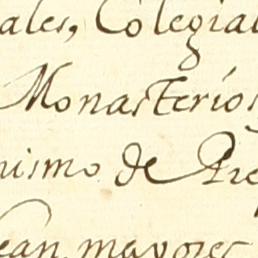 ales, Colegial
Monasterios
nismo de Pre
ean mayores